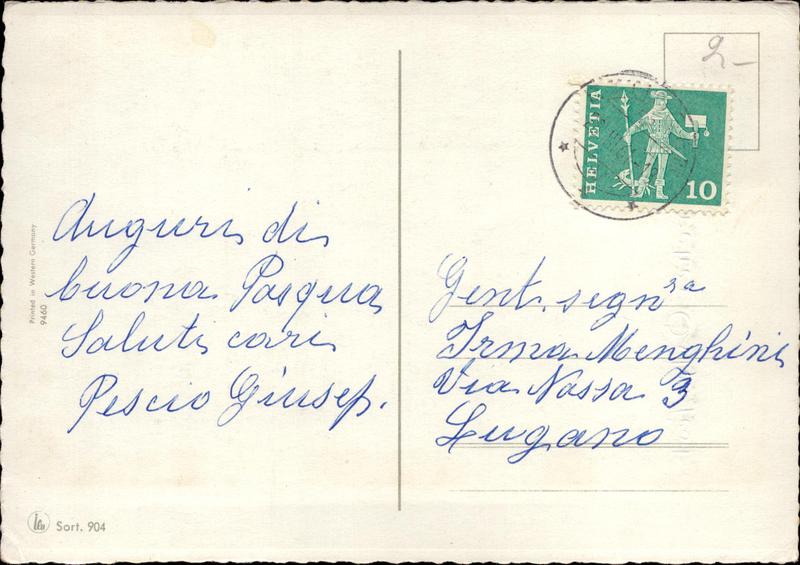 2.-
HELVETIA
10
Auguri di
buona Pasqua
Saluti cari
Pescio Giusep.
Gent. segn.ra
Irma Menghini
Via Nassa 3
Lugano
Printed in Western Germany
9460
Sort. 904